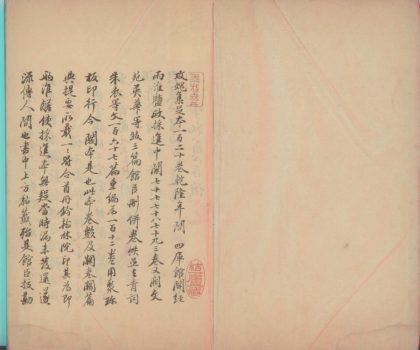 攻媿集足本一百二十卷乾隆年間 四庫館開經
兩淮鹽政採進中闕七十七七十八七十九三卷又闕文
苑英華等跋三篇館臣刪併卷帙並去青詞
朱表等文一百六十七篇重編為一百十二卷用聚珍
板印行今闕本是也此本卷數及闕卷闕篇
與提要所載一一符合首冊鈐翰林院印其為即
兩淮鹽使採進本無疑當時為未發還遂
流傳人間也書中上方粘籤殆是館臣校勘